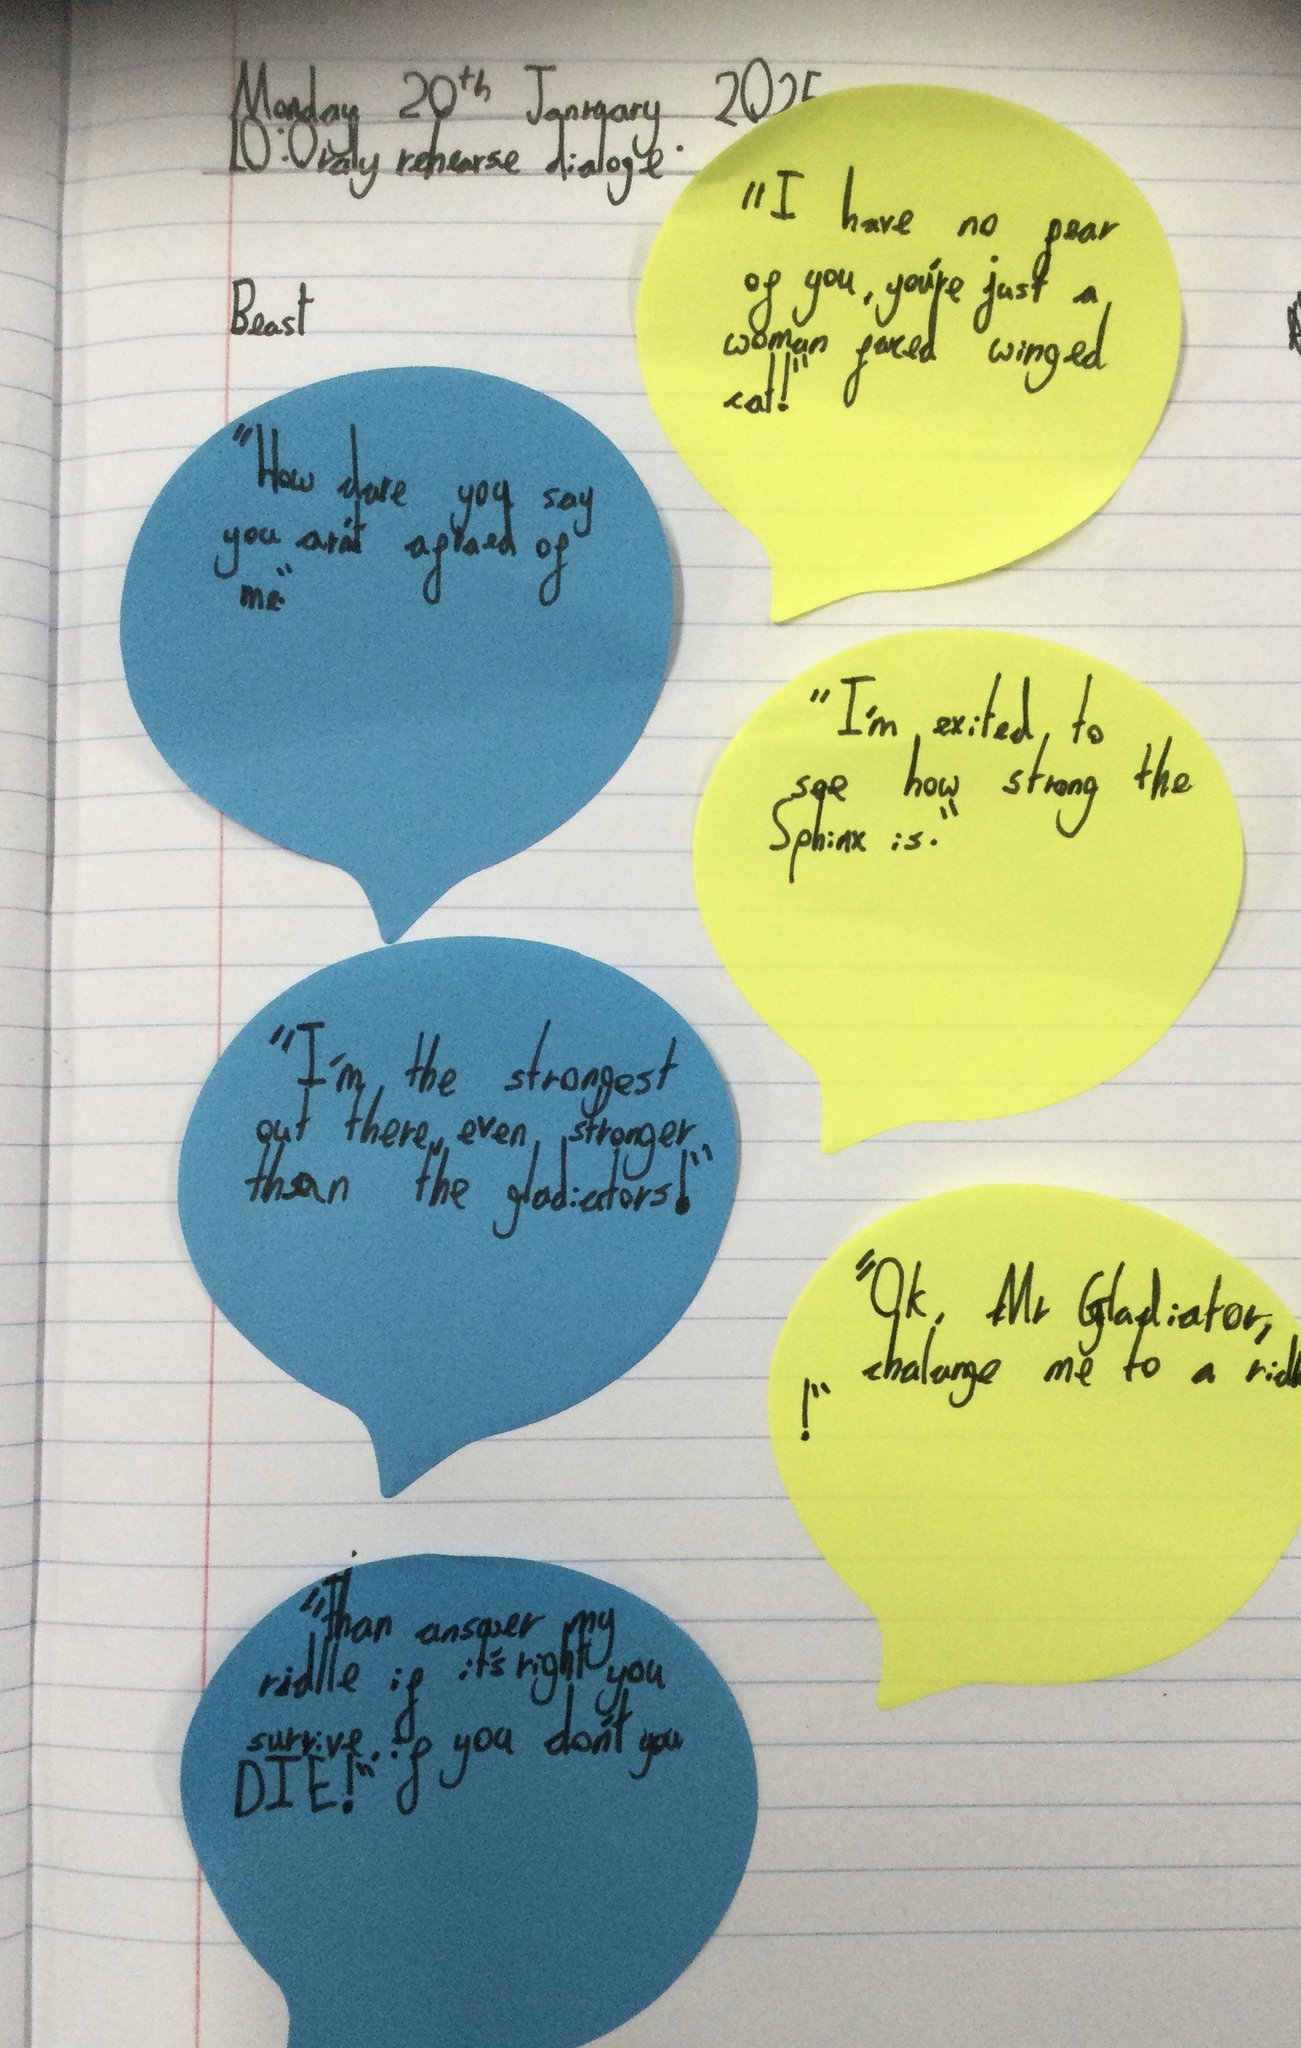 Monday 20th Janruary 2025
LO:Oraly rehearse dialoge.
Beast
"I have no fear
of you, you're just a
woman faced winged
cat!"
"How dare you say
you arn't afraed of
me"
"I'm exited to
see how strong the
Sphinx is."
"I'm the strongest
out there, even stronger
than the gladiators!"
"Ok, Mr Gladiator,
chalange me to a
!"
"Than answer my
riddle if it's right you
survive, if you don't you
DIE!"